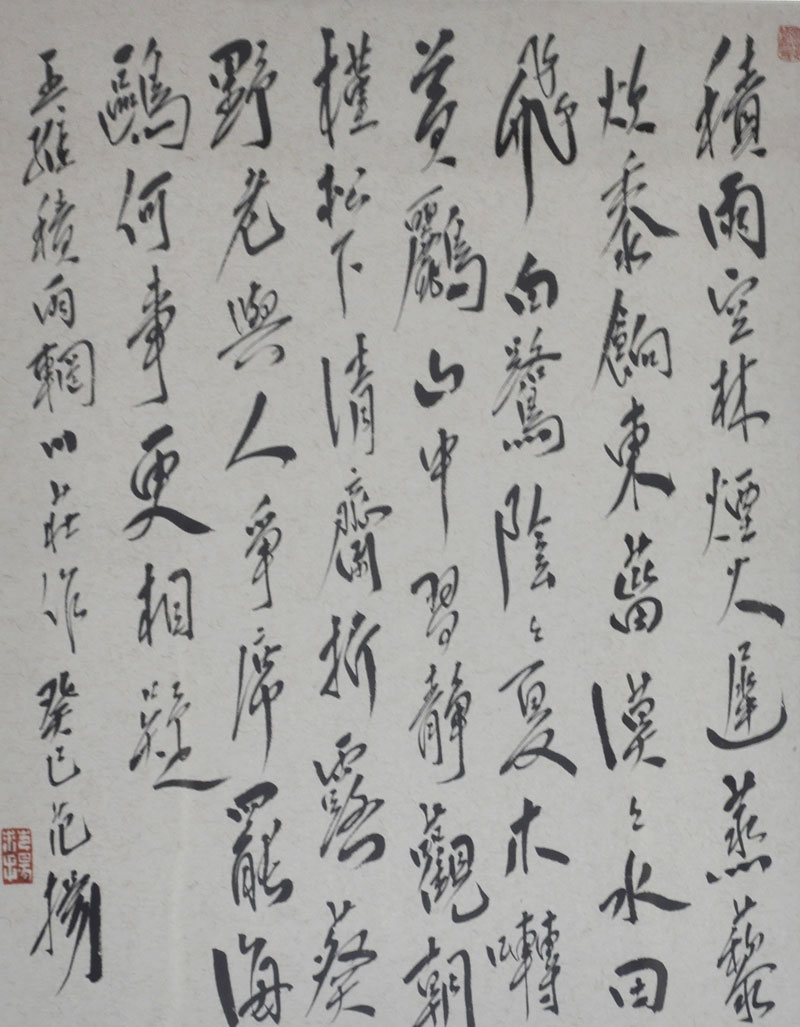 積雨空林煙火遲蒸藜
炊黍餉東菑漠々水田
飛白鷺陰々夏木囀
黃鸝山中習靜觀朝
槿松下清齋折露葵
野老與人爭席罷海
鷗何事更相疑
王維積雨輞川莊作 癸巳范